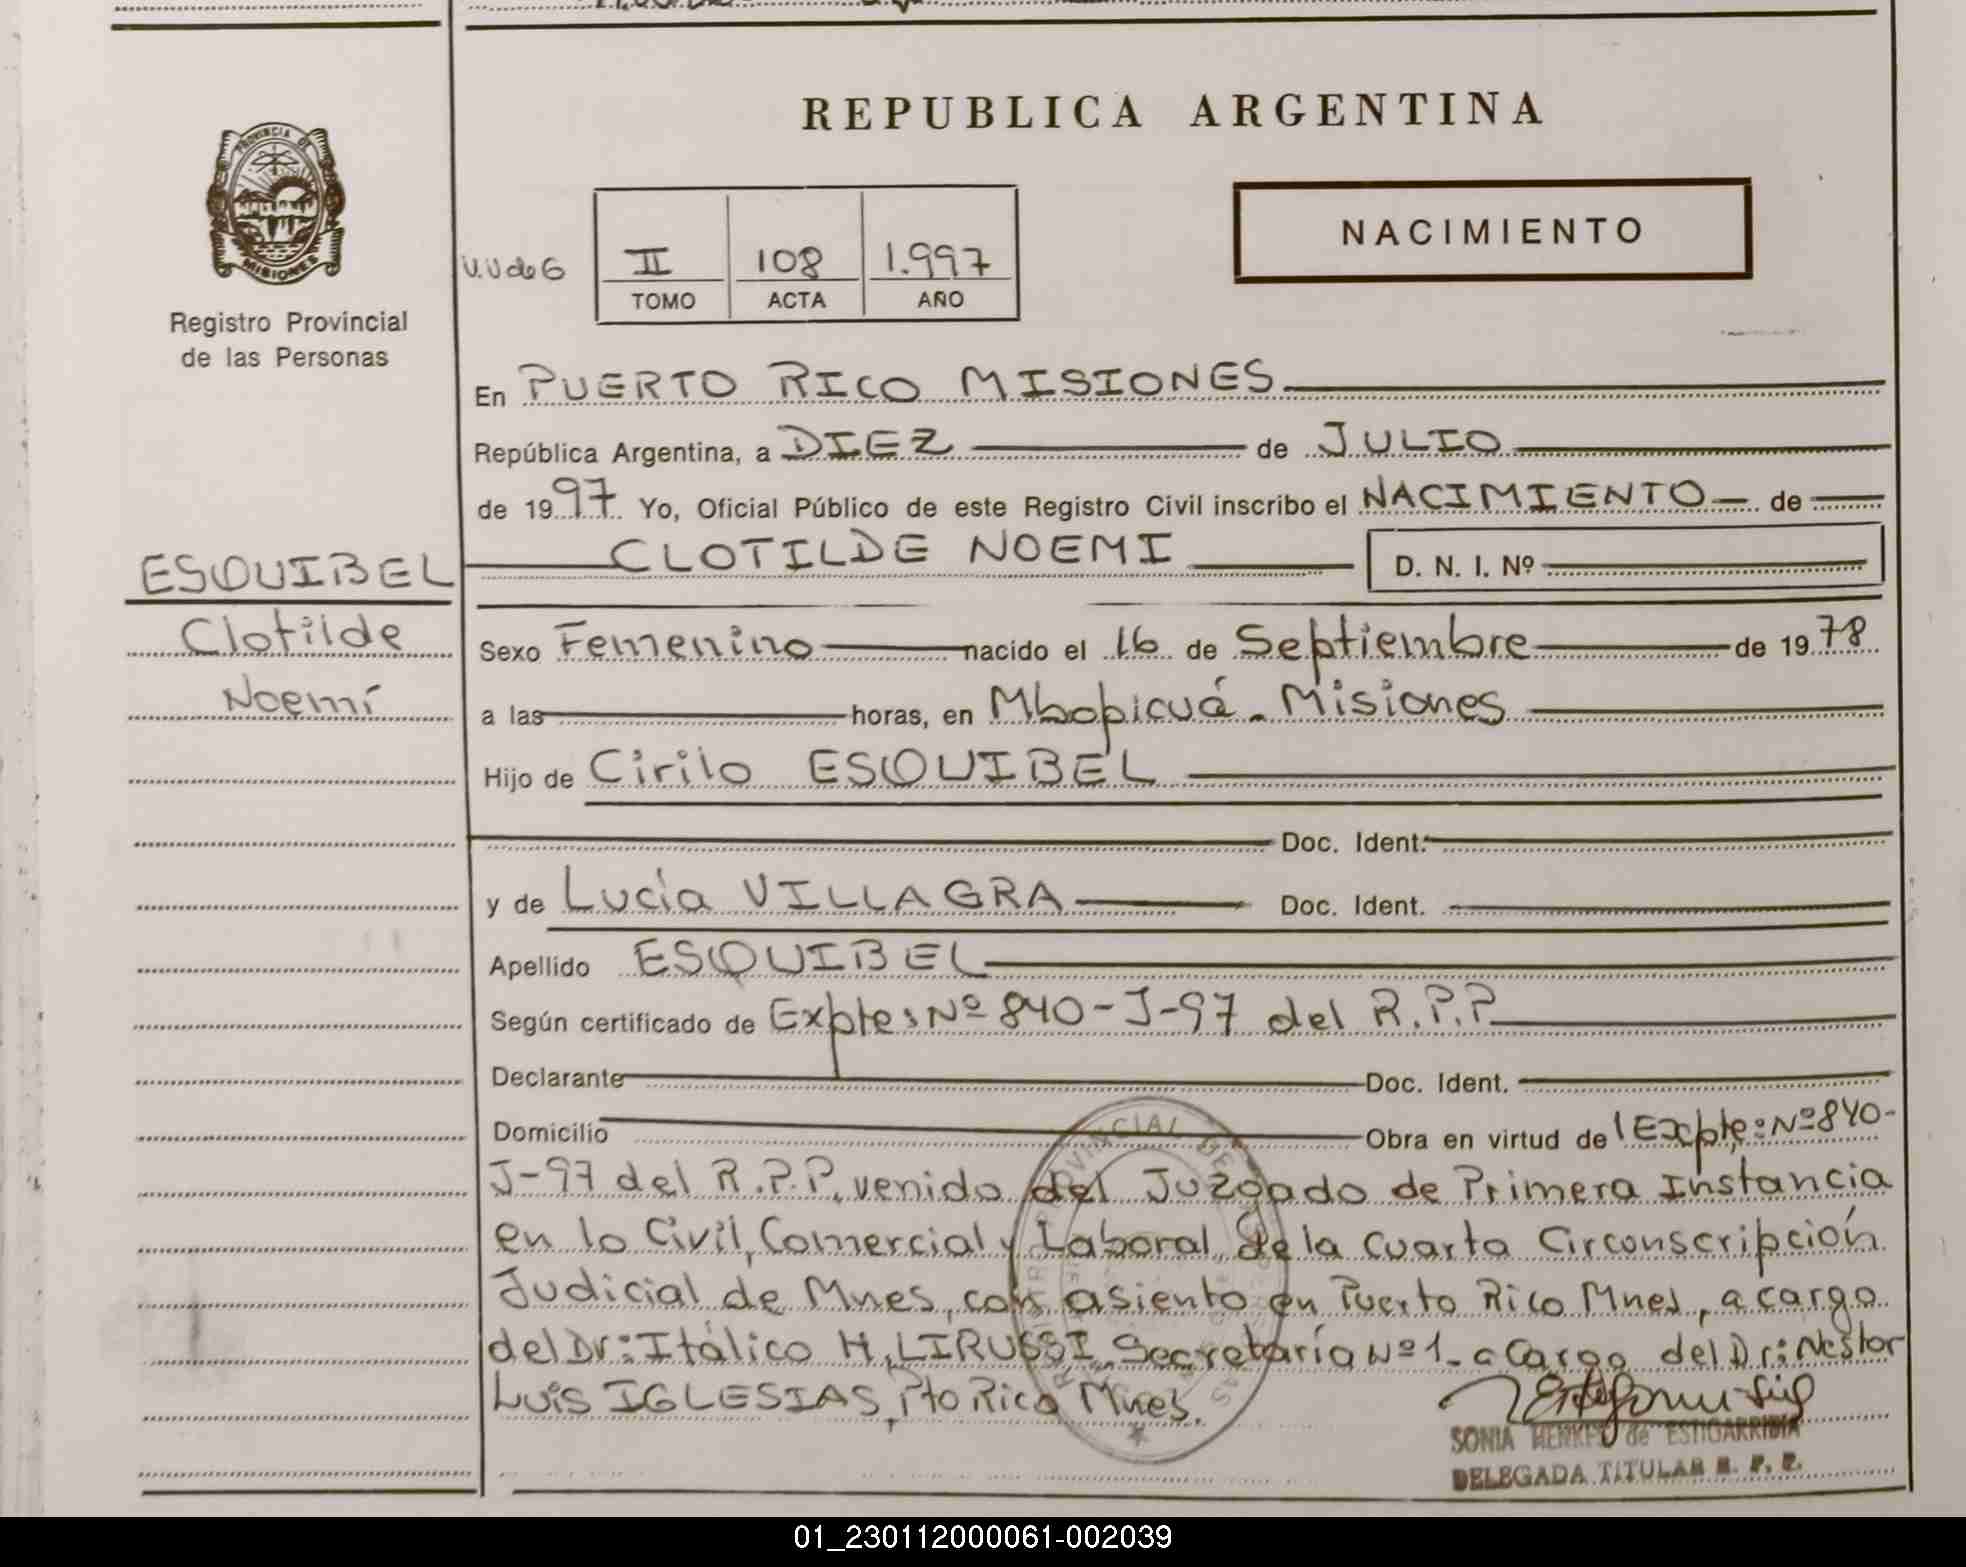 REPUBLICA ARGENTINA
PROVINCIA DE
MISIONES
Registro Provincial
de las Personas
NACIMIENTO
U.U de G
II 108 1.997
TOMO ACTA AÑO
En PUERTO RICO MISIONES
República Argentina, a DIEZ de JULIO
de 1997 Yo, Oficial Público de este Registro Civil inscribo el NACIMIENTO de
CLOTILDE NOEMI D. N. I. Nº
ESQUIBEL
Clotilde
Noemí
Sexo Femenino nacido el 16 de Septiembre de 1978
a las horas, en Mbopicuá - Misiones
Hijo de Cirilo ESQUIBEL
Doc. Ident.
y de Lucía VILLAGRA Doc. Ident.
Apellido ESQUIBEL
Según certificado de Expte: Nº 840-J-97 del R.P.P
Declarante Doc. Ident.
Domicilio Obra en virtud de Expte: Nº 840-
J-97 del R.P.P, venido del Juzgado de Primera Instancia
en lo Civil, Comercial y Laboral de la Cuarta Circonscripción
Judicial de Mnes, con asiento en Puerto Rico Mnes, a cargo
del Dr: Itálico H. LIRUSSI Secretaría Nº 1 - a Cargo del Dr: Nestor
Luis IGLESIAS, Pto Rico Mnes.
SONIA HENKES de ESTIGARRIBIA
DELEGADA TITULAR R. P. P.
01_230112000061-002039